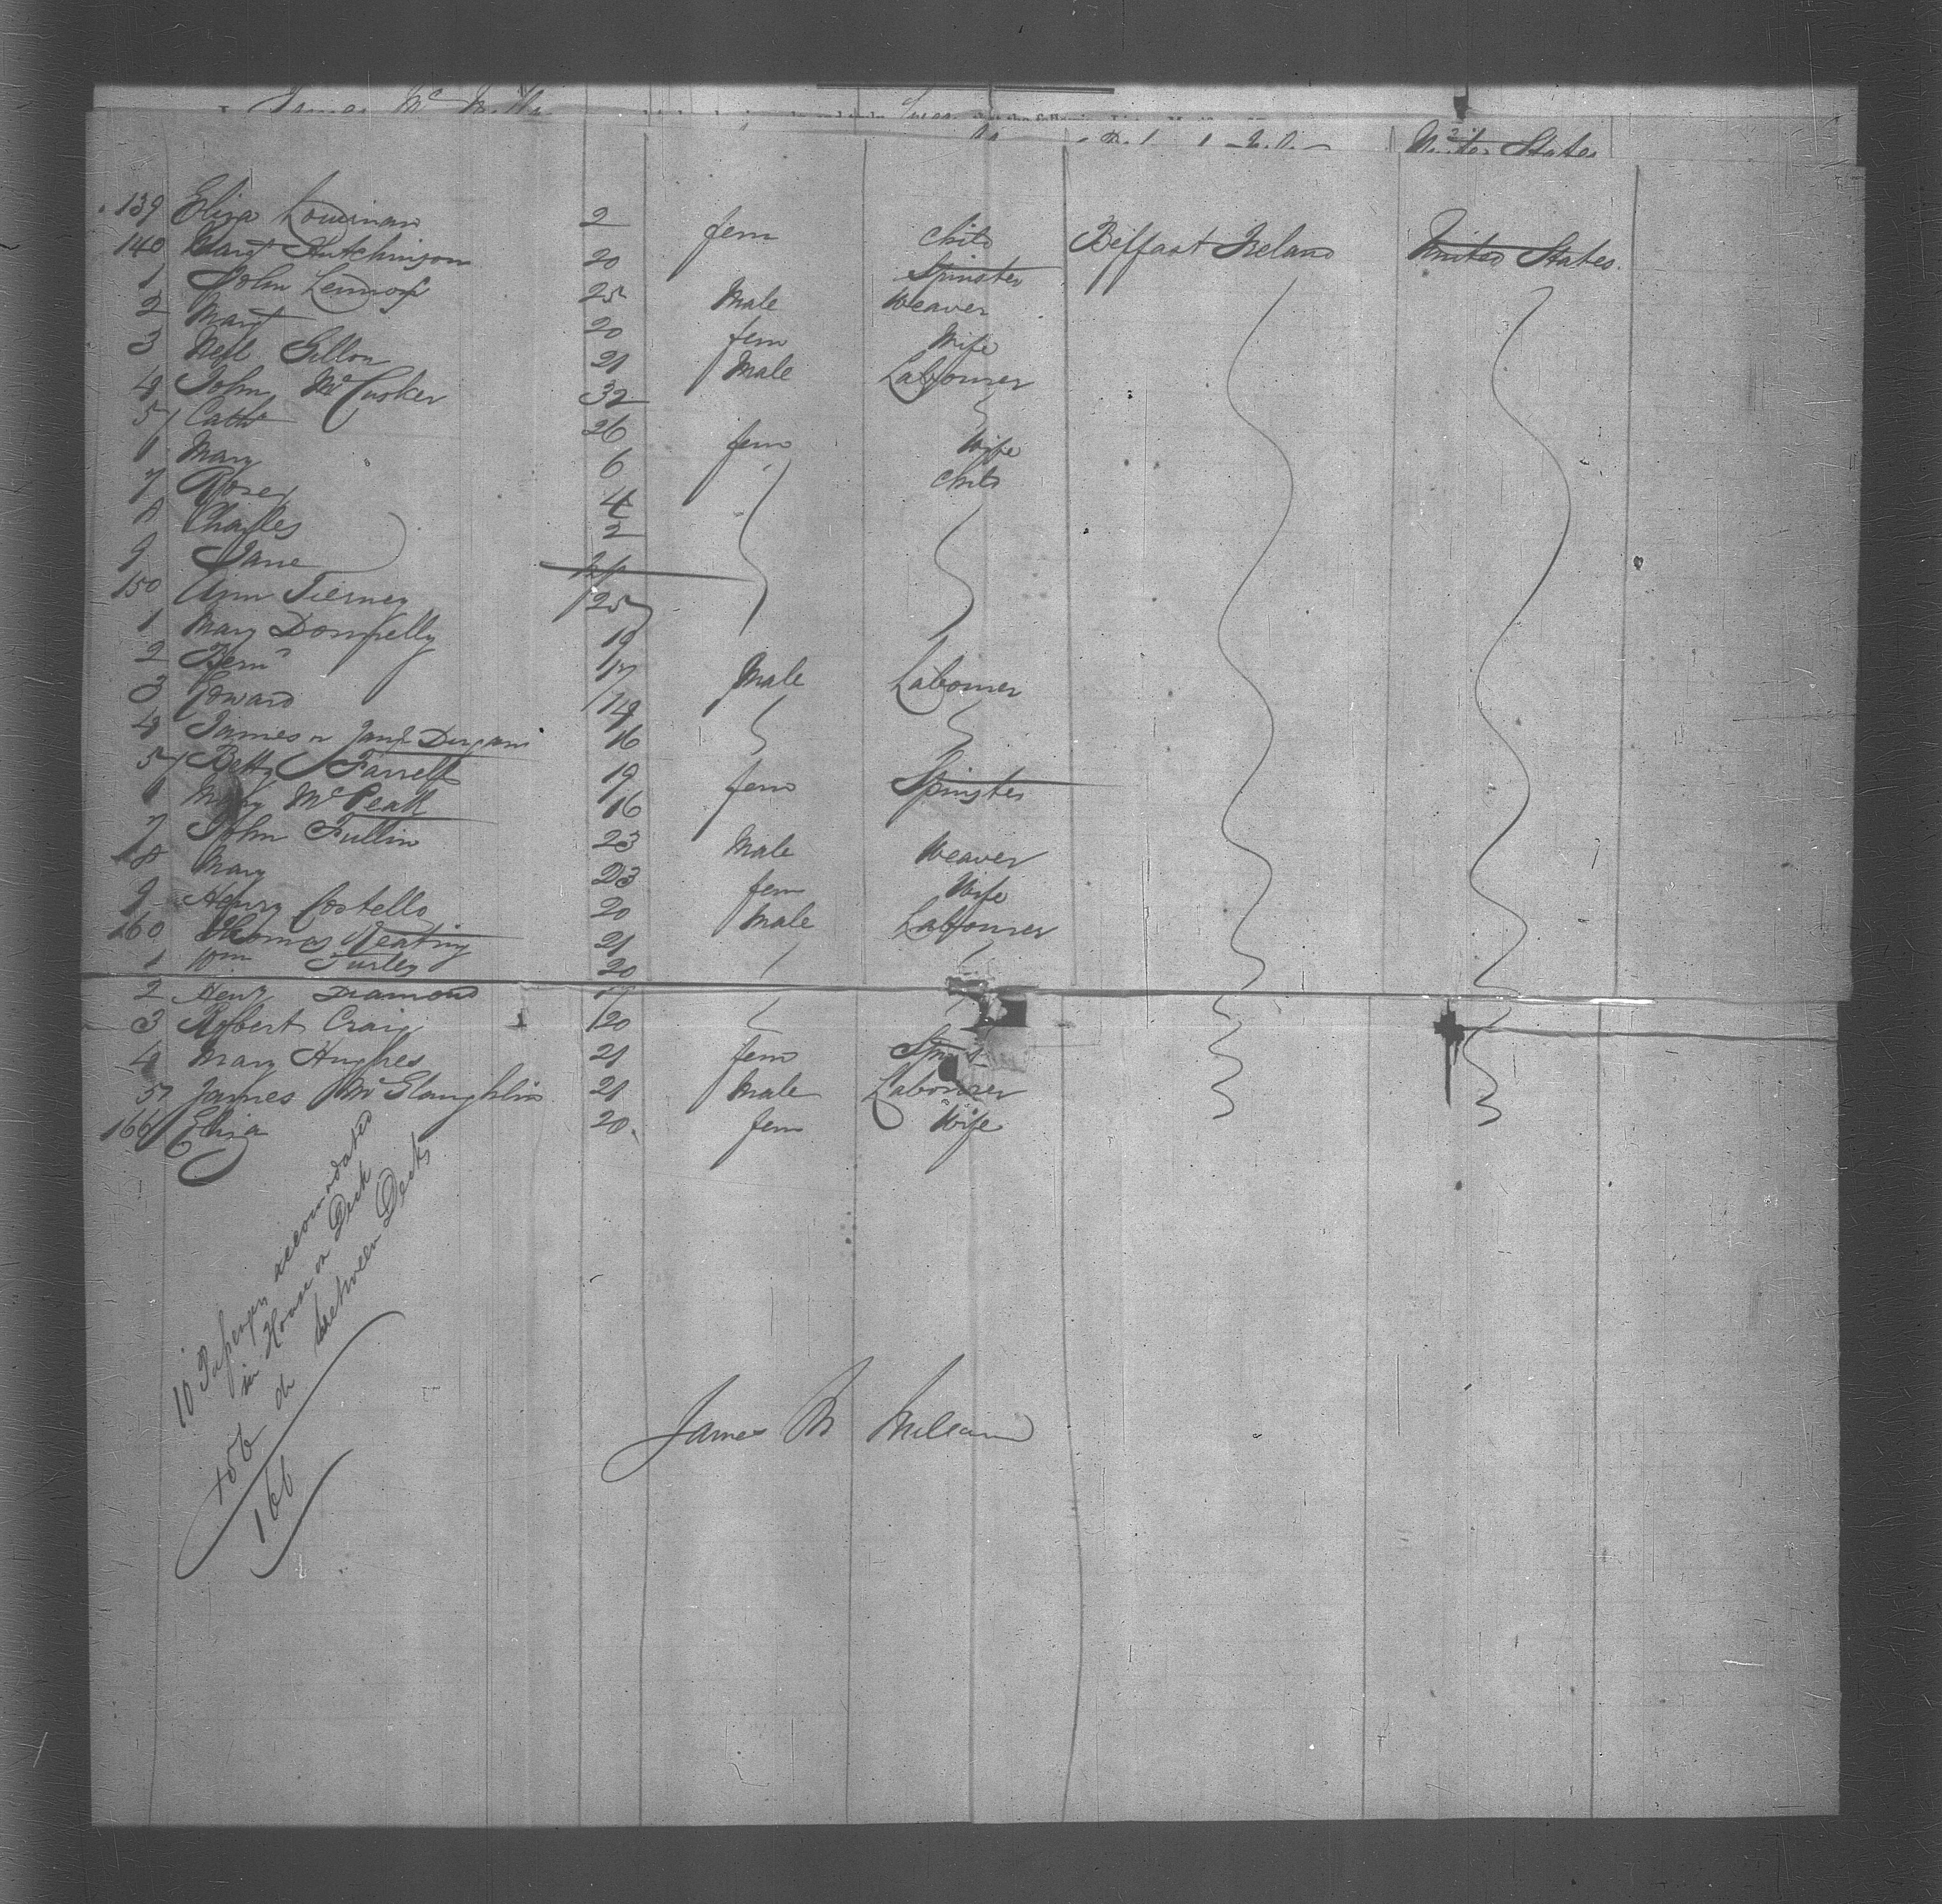 United States
139 Eliza 2 fem Child Belfast Ireland United States
140 Margt Hutchinson 20 Spinster
1 John Lennox 25 Male Weaver
2 Margt 20 fem Wife
3 Neil Gillon 21 Male Labourer
4 John McCusker 32
5 Cathe 26 fem Wife
6 Mary 6 Child
7 Rose 4
8 Charles 2
9 Jane
150 Ann Tierney 25
1 Mary Donnelly 19
2 Bernd 17 Male Labourer
3 Edward 14
4 James or Jane Durgan 16
5 Betty Farrell 19 fem Spinster
6 Mary McPeak 16
7 John Fullin 23 Male Weaver
8 Mary 23 fem Wife
9 Henry Costello 20 Male Labourer
160 Thomas Keating 21
1 Wm Turley 20
2 Henry Diamond
3 Robert Craig 20
4 Mary Hughes 21 fem
5 James McGlaughlin 21 Male Labourer
166 Eliza 20 fem Wife
10 Passengers accomodated
in House on Deck
156 do between Decks
166
James